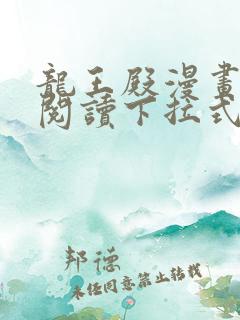 龍王殿漫畫
閱讀下拉式
邦德
未經同意禁止轉載